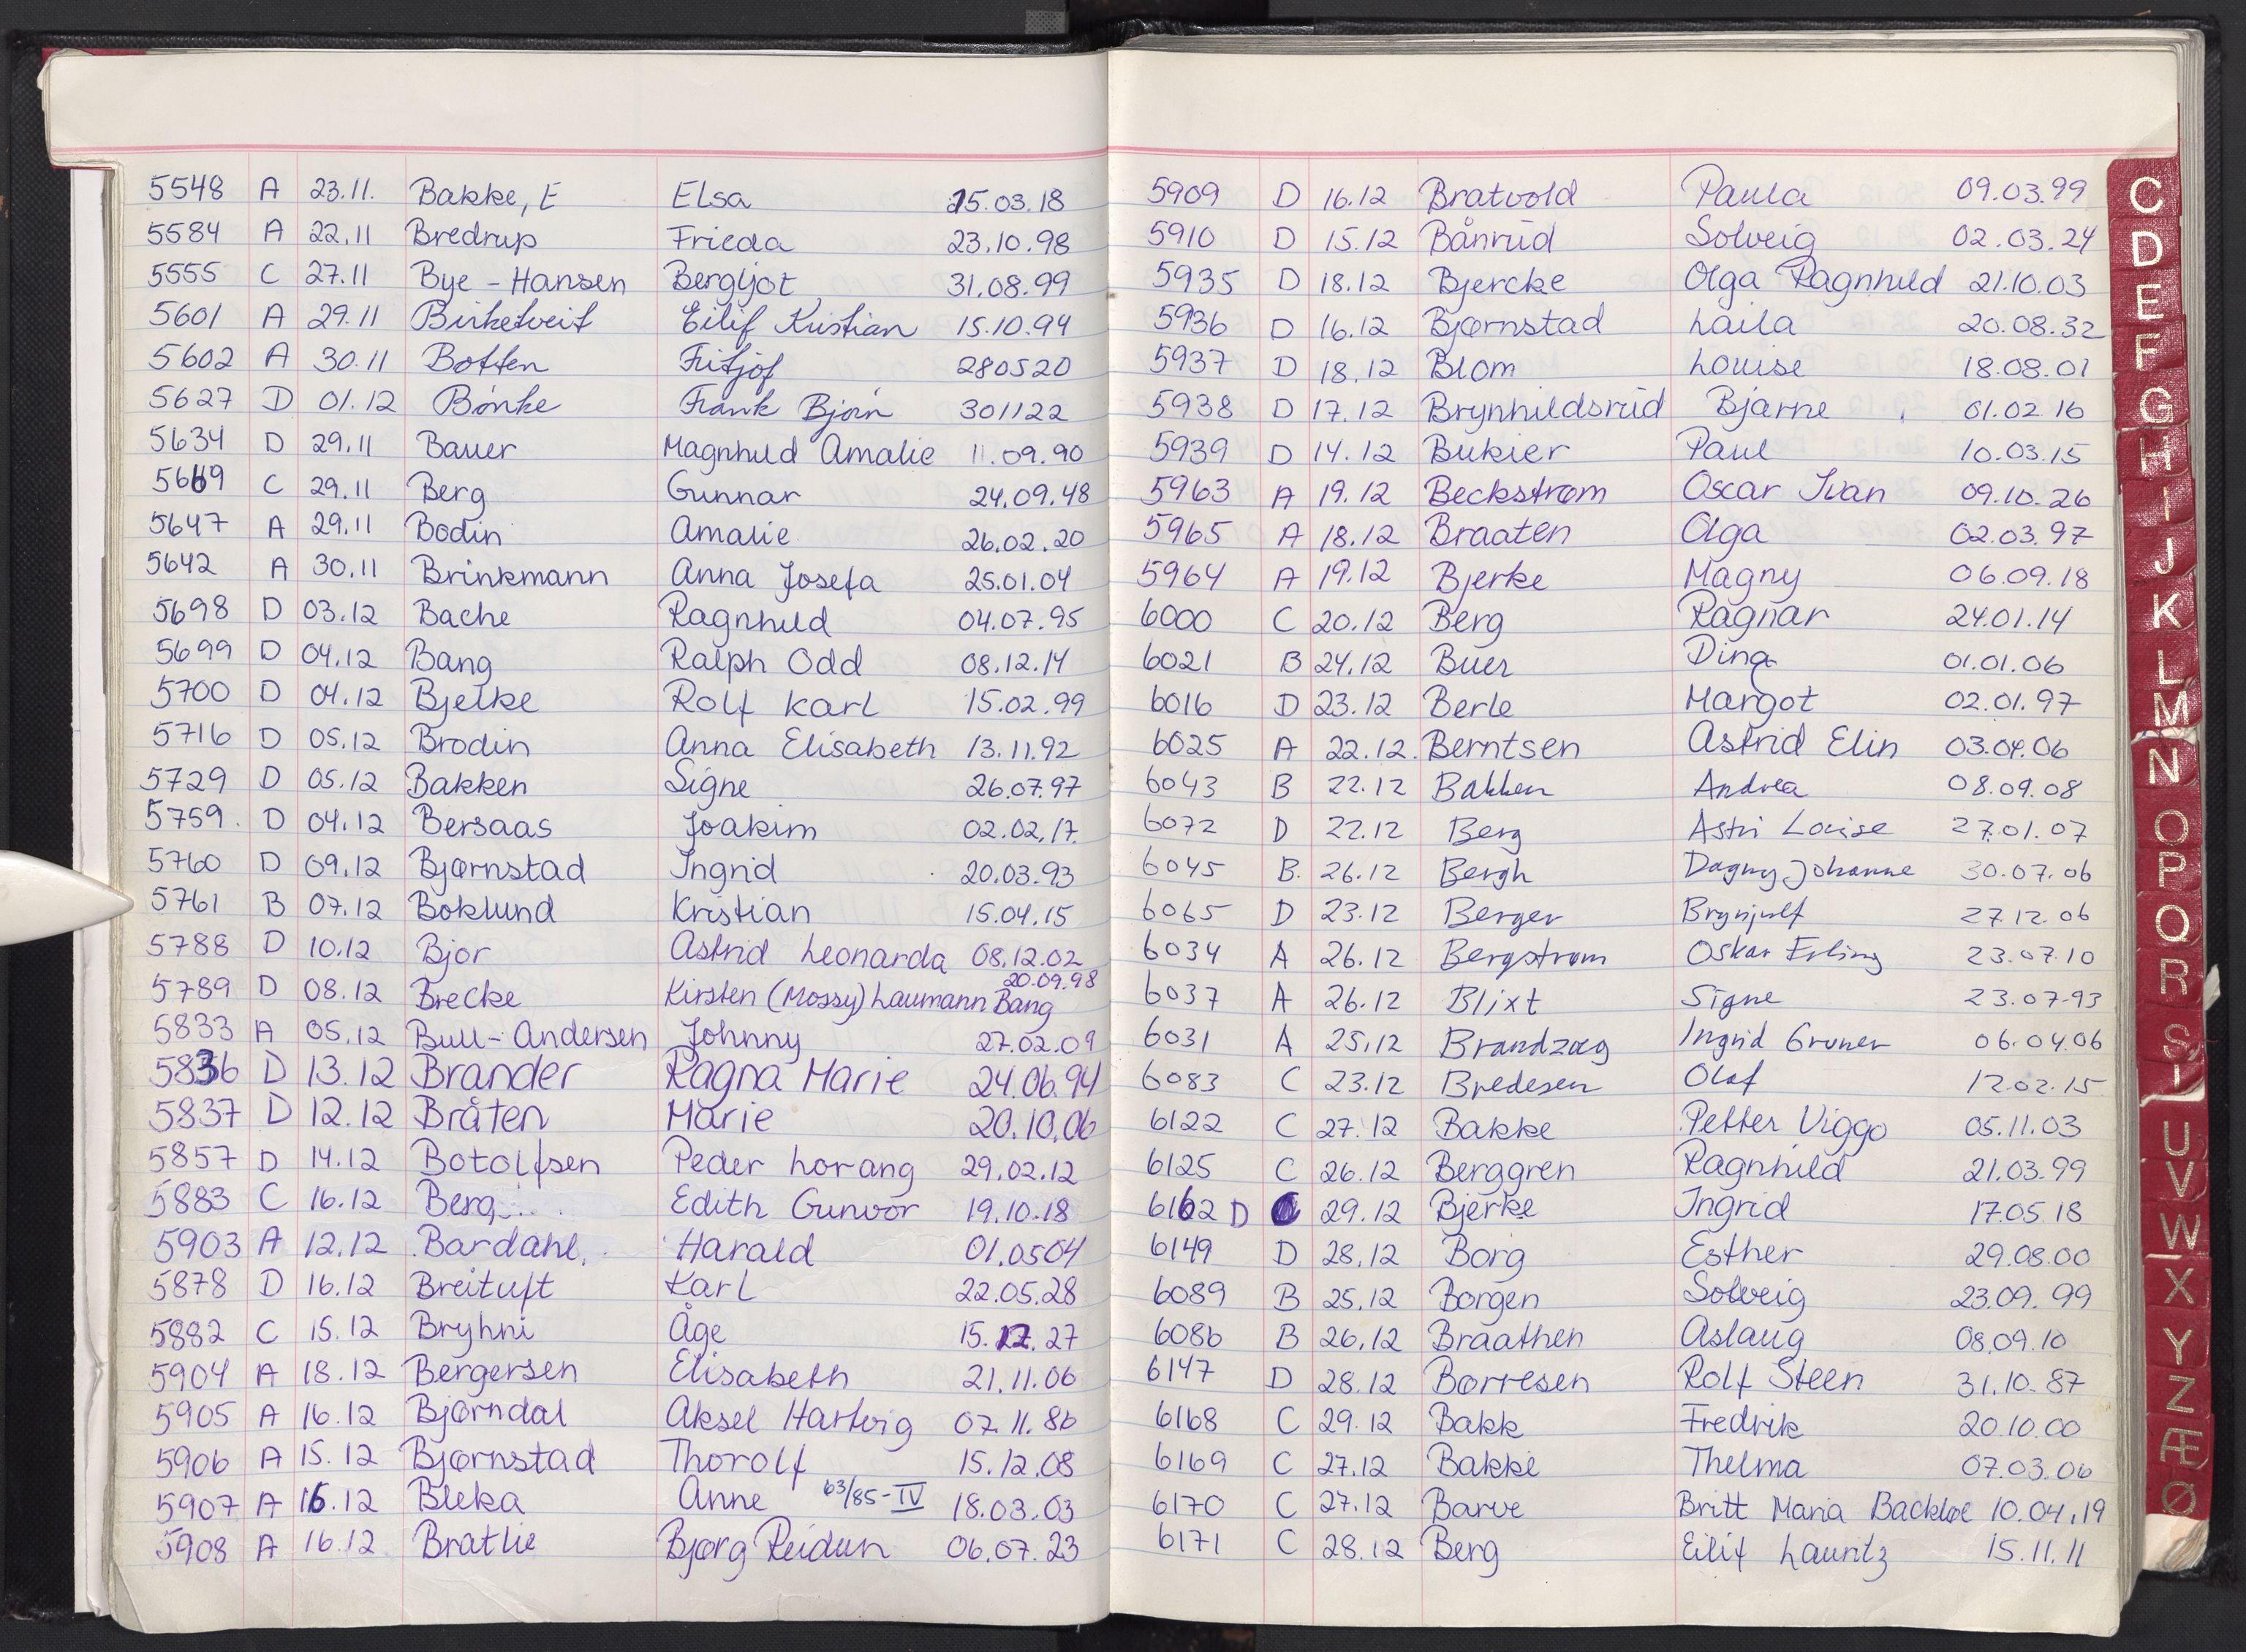 5548 A 23.11. Bakke, E Elsa 15.03.18
5584 A 22.11 Bredrup Frieda 23.10.98
5555 C 27.11 Bye - Hansen Bergljot 31.08.99
5601 A 29.11 Birketveit Eilif Kristian 15.10.94
5602 A 30.11 Botten Fritjof 280520
5627 D 01.12 Bönke Frank Bjørn 301122
5634 D 29.11 Bauer Magnhild Amalie 11.09.90
5669 C 29.11 Berg Gunnar 24.09.48
5647 A 29.11 Bodin Amalie 26.02.20
5642 A 30.11 Brinkmann Anna Josefa 25.01.04
5698 D 03.12 Bache Ragnhild 04.07.95
5699 D 04.12 Bang Ralph Odd 08.12.14
5700 D 04.12 Bjelke Rolf Karl 15.02.99
5716 D 05.12 Brodin Anna Elisabeth 13.11.92
5729 D 05.12 Bakken Signe 26.07.97
5759. D 04.12 Bersaas Joakim 02.02.17.
5760 D 09.12 Bjørnstad Ingrid 20.03.93
5761 B 07.12 Boklund Kristian 15.04.15
5788 D 10.12 Bjor Astrid Leonarda 08.12.02
5789 D 08.12 Brecke Kirsten (Mossy) Laumann Bang 20.09.98
5833 A 05.12 Bull-Andersen Johnny 27.02.09
5836 D 13.12 Brander Ragna Marie 24.06.94
5837 D 12.12 Bråten Marie 20.10.06
5857 D 14.12 Botolfsen Peder Lorang 29.02.12
5883 C 16.12 Berg Edith Gunvor 19.10.18
5903 A 12.12 Bardahl Harald 01.0504
5878 D 16.12 Breituft Karl 22.05.28
5882 C 15.12 Bryhni Åge 15.12.27
5904 A 18.12 Bergersen Elisabeth 21.11.06
5905 A 16.12 Bjørndal Aksel Hartvig 07.11.86
5906 A 15.12 Bjørnstad Thorolf 15.12.08
5907 A 16.12 Bleka Anne 63/85-IV 18.03.03
5908 A 16.12 Bratlie Bjørg Reidun 06.07.23
5909 D 16.12 Bratvold Paula 09.03.99
5910 D 15.12 Bånrud Solveig 02.03.24
5935 D 18.12 Bjercke Olga Ragnhild 21.10.03
5936 D 16.12 Bjørnstad Laila 20.08.32
5937 D 18.12 Blom Louise 18.08.01
5938 D 17.12 Brynhildsrud Bjarne 01.02.16
5939 D 14.12 Bukier Paul 10.03.15
5963 A 19.12 Beckstrøm Oscar Ivan 09.10.26
5965 A 18.12 Braaten Olga 02.03.97
5964 A 19.12 Bjerke Magny 06.09.18
6000 C 20.12 Berg Ragnar 24.01.14
6021 B 24.12 Buer Dina 01.01.06
6016 D 23.12 Berle Margot 02.01.97
6025 A 22.12. Berntsen Astrid Elin 03.04.06
6043 B 22.12 Bakken Andrea 08.09.08
6072 D 22.12 Berg Astri Louise 27.01.07
6045 B. 26.12 Bergh Dagny Johanne 30.07.06
6065 D 23.12 Berger Brynjulf 27.12.06
6034 A 26.12 Bergstrøm Oskar Erling 23.07.10
6037 A 26.12 Blixt Signe 23.07.93
6031 A 25.12 Brandzæg Ingrid Gruner 06.04.06
6083 C 23.12 Bredesen Olaf 12.02.15
6122 C 27.12 Bakke Petter Viggo 05.11.03
6125 C 26.12 Berggren Ragnhild 21.03.99
6162 D 29.12 Bjerke Ingrid 17.05.18
6149 D 28.12 Borg Esther 29.08.00
6089 B 25.12 Borgen Solveig 23.09.99
6086 B 26.12 Braathen Aslaug 08.09.10
6147 D 28.12 Børresen Rolf Steen 31.10.87
6168 C 29.12 Bakk Fredrik 20.10.00
6169 C 27.12 Bakke Thelma 07.03.06
6170 C 27.12 Barve Britt Maria Backloe 10.04.19
6171 C 28.12 Berg Eilif Lauritz 15.11.11
C
D
E
F
G
H
I
J
K
L
M
N
O
P
Q
R
S
T
U
V
W
X
Y
Z
Æ
Ø